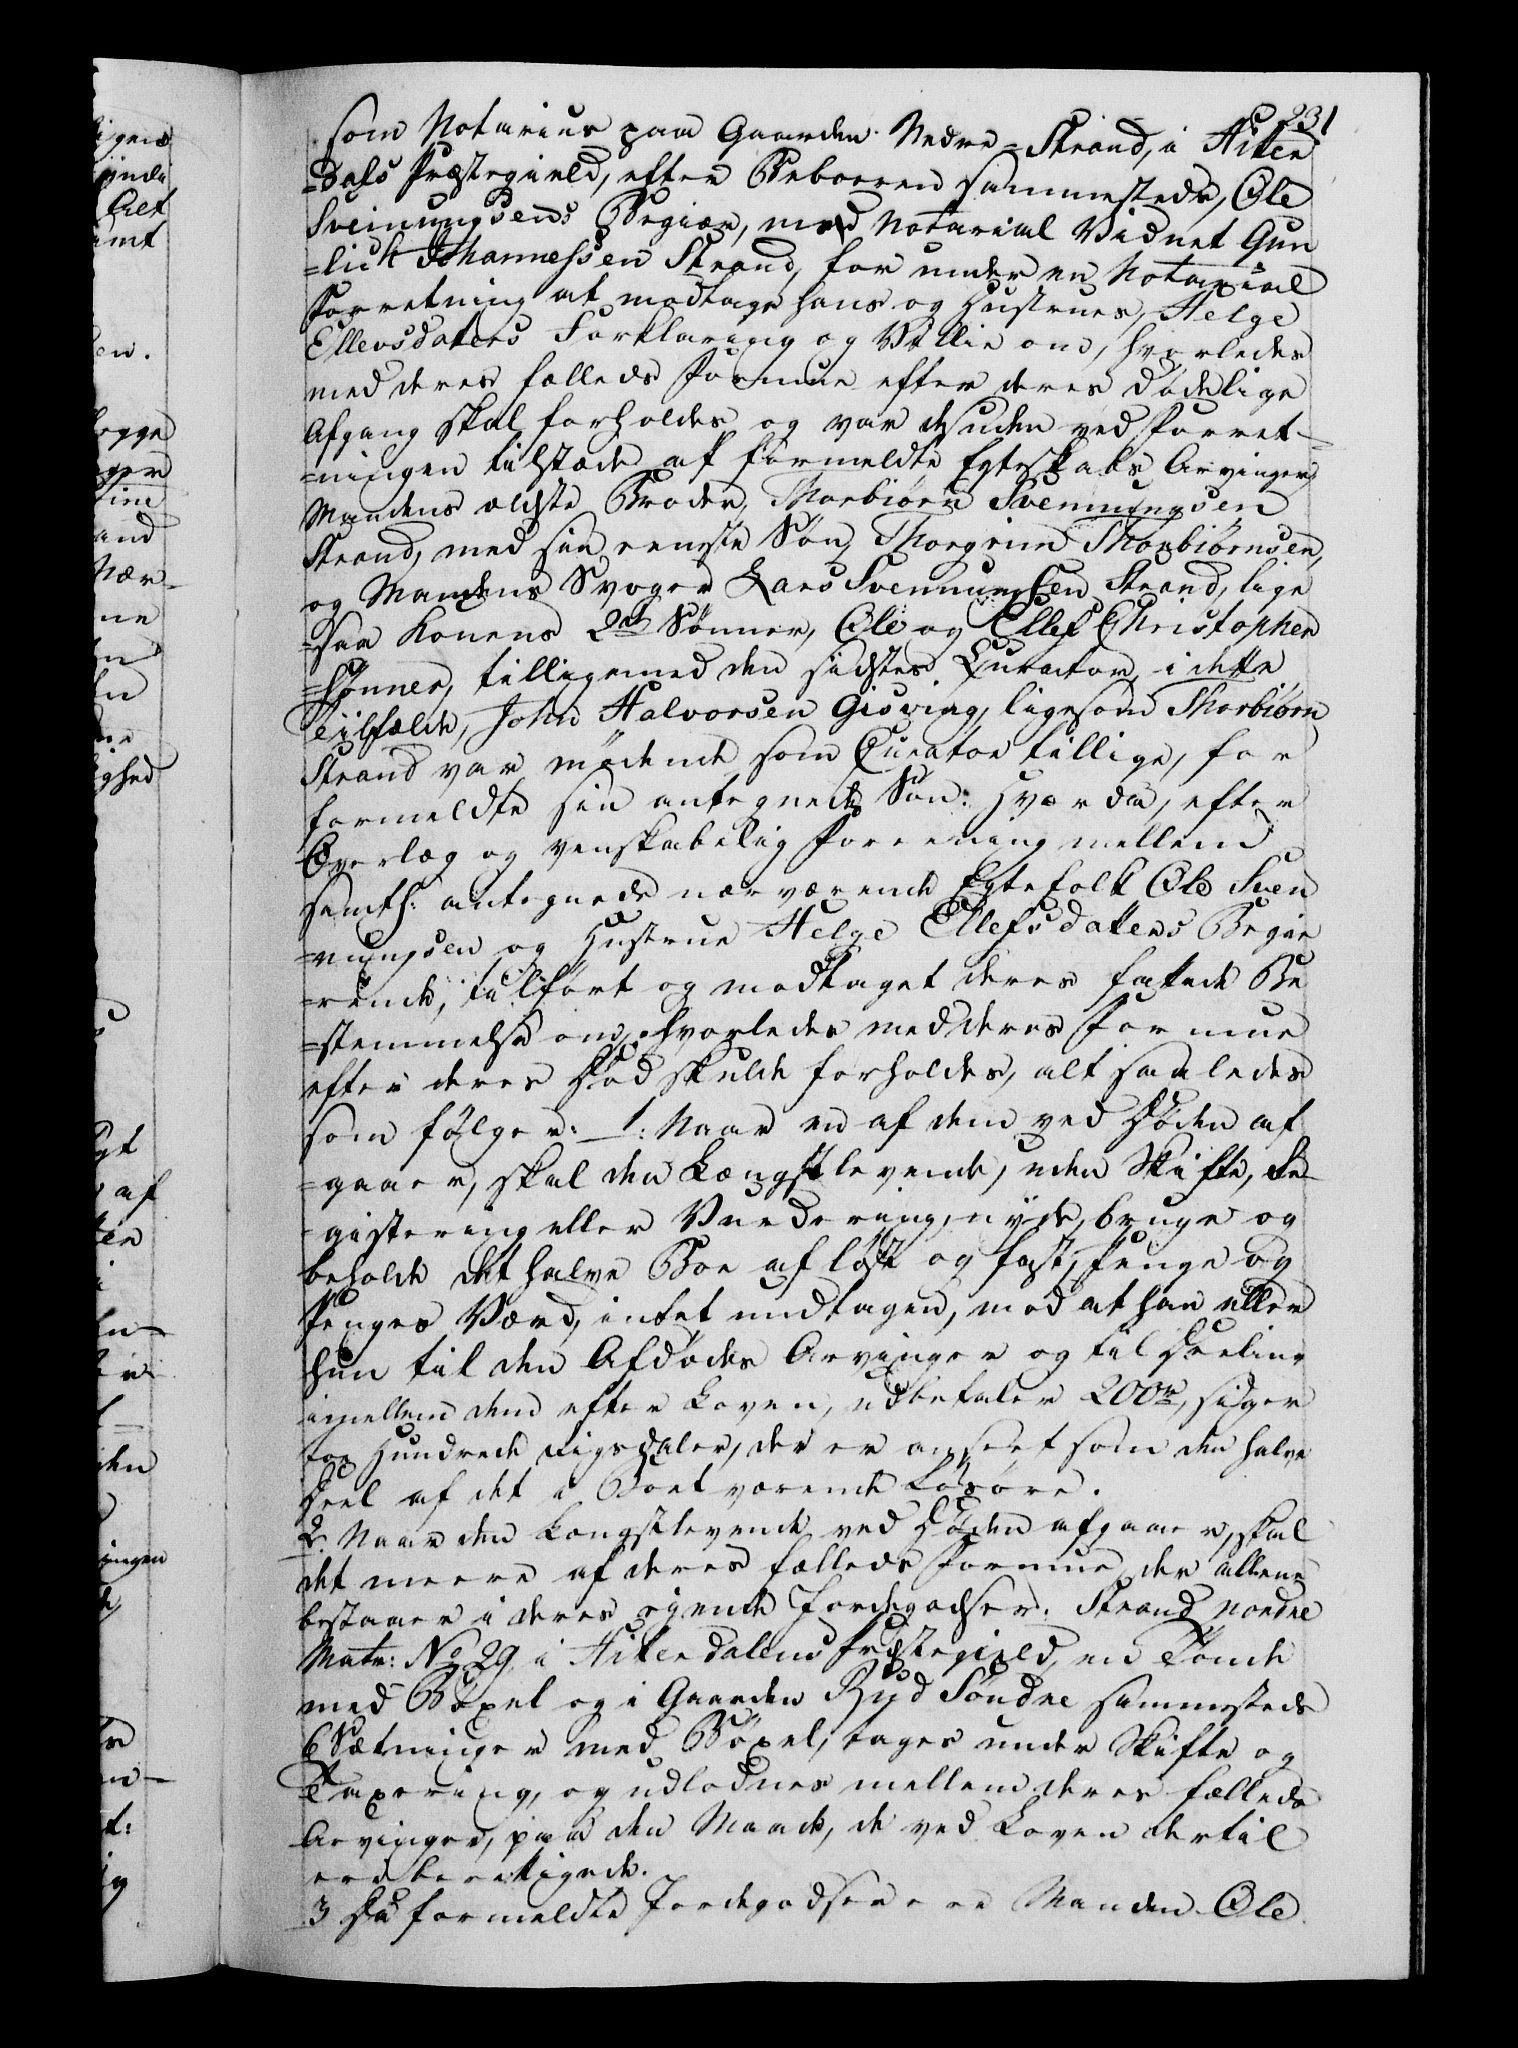 231
som Notarius paa Gaarden Nedre-Strand, i Hitter
=dals Præstegield, efter Beboeren sammesteds, Ole
Sveinungsens Begiær, med Notarial Vidnet Gun
=lich Johannessen Strand, for under en Notarial
Forretning at modtage hans og Hustrues, Helge
Ellevsdaters Forklaring og Villie om, hvorledes
med deres fælleds Formue efter deres dødelige
Afgang skal forholdes og var desuden ved Forret-
=ningen tilstæde af formeldte Egteskabs Arvinger,
Mandens ældste Broder, Thorbiørn Svennungsen
Strand, med sin eeneste Søn, Thorgrim Thorbiørnsen,
og Mandens Svoger Lars Svennungsen Strand, lige
=saa Konens 2de Sønner, Ole og Ellef Christopher
=sønner, tilligemed den sidstes Curator, i dette
Tilfælde, John Halvorsen Gisving, ligesom Thorbiørn
Strand var mødende som Curator tillige, for
formeldte sin antegnede Søn: Hvor da, efter
Overlæg og venskabelig Foreening mellem
samtl: antegnede nærværende Egtefolk Ole Sven
=nungsen og Hustrue Helge Ellefsdaters Begiæ
=rende, tilført og modtaget deres fattede Be
=stemmelse om, hvorledes med deres Formue
efter deres Død skulde forholdes, alt saaledes
som følger: 1: Naar en af dem ved Døden af
=gaaer, skal den Længstlevende, uden Skifte, Re-
=gistering eller Vurdering, nyde, bruge og
beholde det halve Boe af løst og fast, Penge og
Penges Værd, intet undtagen, mod at han eller
hun til den Afdødes Arvinger og til Deeling
imellem dem efter Loven, udbetaler 200rd, siger
toe Hundrede Rigsdaler, der er anseet som den halve
Deel af det i Boet værende Løsøre.
2. Naar den Længstlevende ved Døden afgaaer, skal
det meere af deres fælleds Formue der allene
bestaaer i deres eyende Jordegodser: Strand nordre
Matr: No 29 i Hitterdalens Præstegield, en Tønde
med Bøxel og i Gaarden Ryd Søndre sammesteds
6 Sætninger med Bøxel, tages under Skifte og
Taxering, og udlodnes mellem deres fælleds
Arvinger, paa den Maade, de ved Loven dertil
ere berettigede.
3 Da formeldte Jordegodser ere Manden Ole